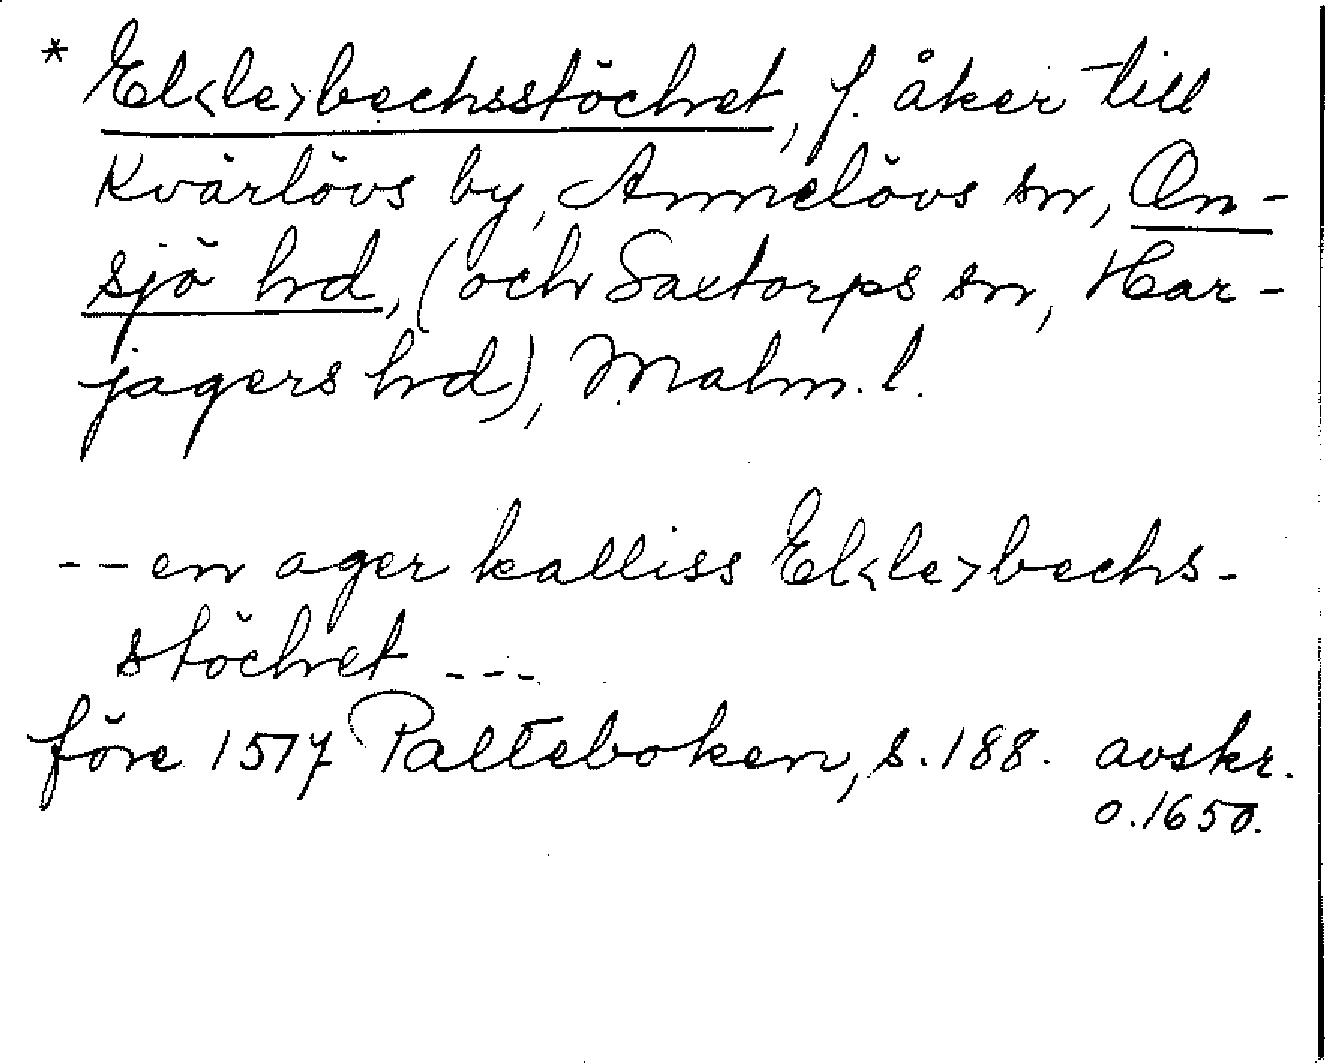 * El<le>bechsstöchet, f. åker till
Kvärlövs by, Annelövs sn, On-
sjö hd, (och Saxtorps sn, Har-
jagers hd), Malm. l.
-- en ager kalliss El<le>bechs-
stöchet ---
före 1517 Palteboken, s. 188. avskr.
o. 1650.